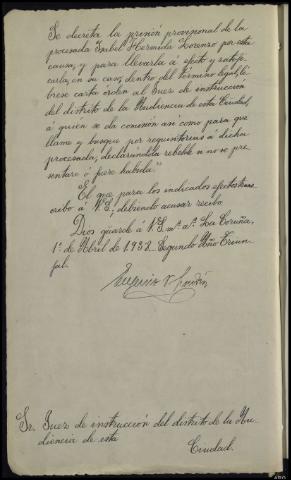 Se decreta la prisión provisional de la
procesada Isabel Hermida Lorenzo por esta
causa, y para llevarla á efecto y ratifi-
carla, en su caso, dentro del término legal, lí-
brese carta orden al Juez de instruccion
del distrito de la Audiencia de esta Ciudad,
á quien se da comisión así como para que
llame y busque por requisitorias á dicha
procesada, declarándola rebelde si no se pre-
sentare ó fuere habida."
El que para los indicados efectos trans-
cribo á V.S., debiendo acusar recibo
Dios guarde á V.S. mˢ. aˢ. La Coruña,
1º de Abril de 1938. Segundo Año Triun-
fal.
Sr. Juez de instrucción del distrito de la Au-
diencia de esta
Ciudad.